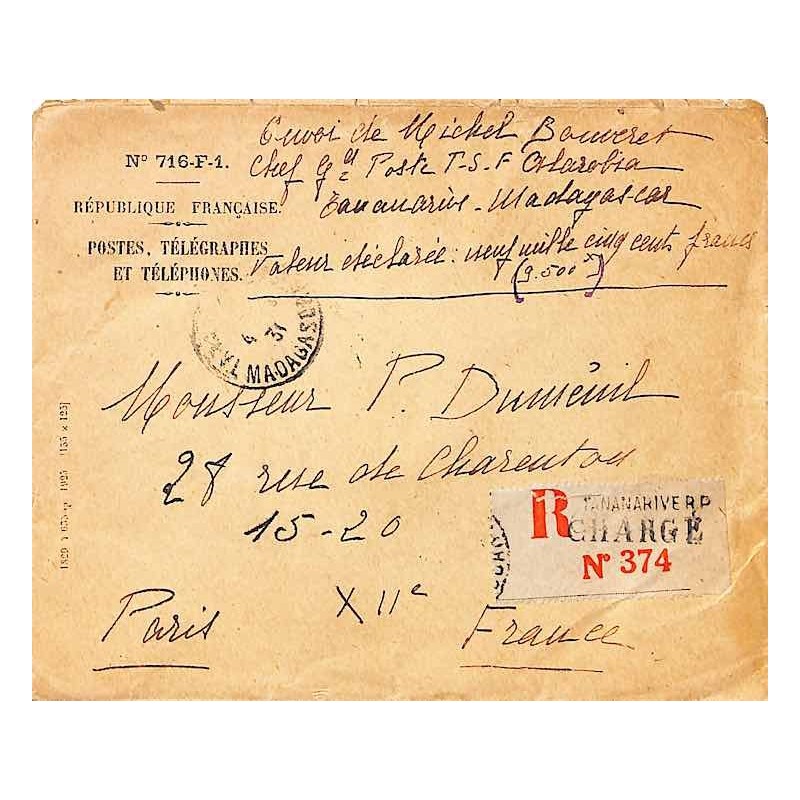 Envoi de Michel Bouveret
Chef Gd de Poste T-S-F Alarobia
Tananarive - Madagascar
Valeur déclarée : neuf mille cinq cents francs
(9.500 )
Nº 716-F-1.
RÉPUBLIQUE FRANÇAISE.
POSTES, TÉLÉGRAPHES
ET TÉLÉPHONES.
4
31
MADAGASC
Monsieur P. Duméuil
28 rue de Charenton
15-20
XIIe
Paris France
R TANANARIVE R.P
CHARGÉ
Nº 374
1925 [155 x 125]